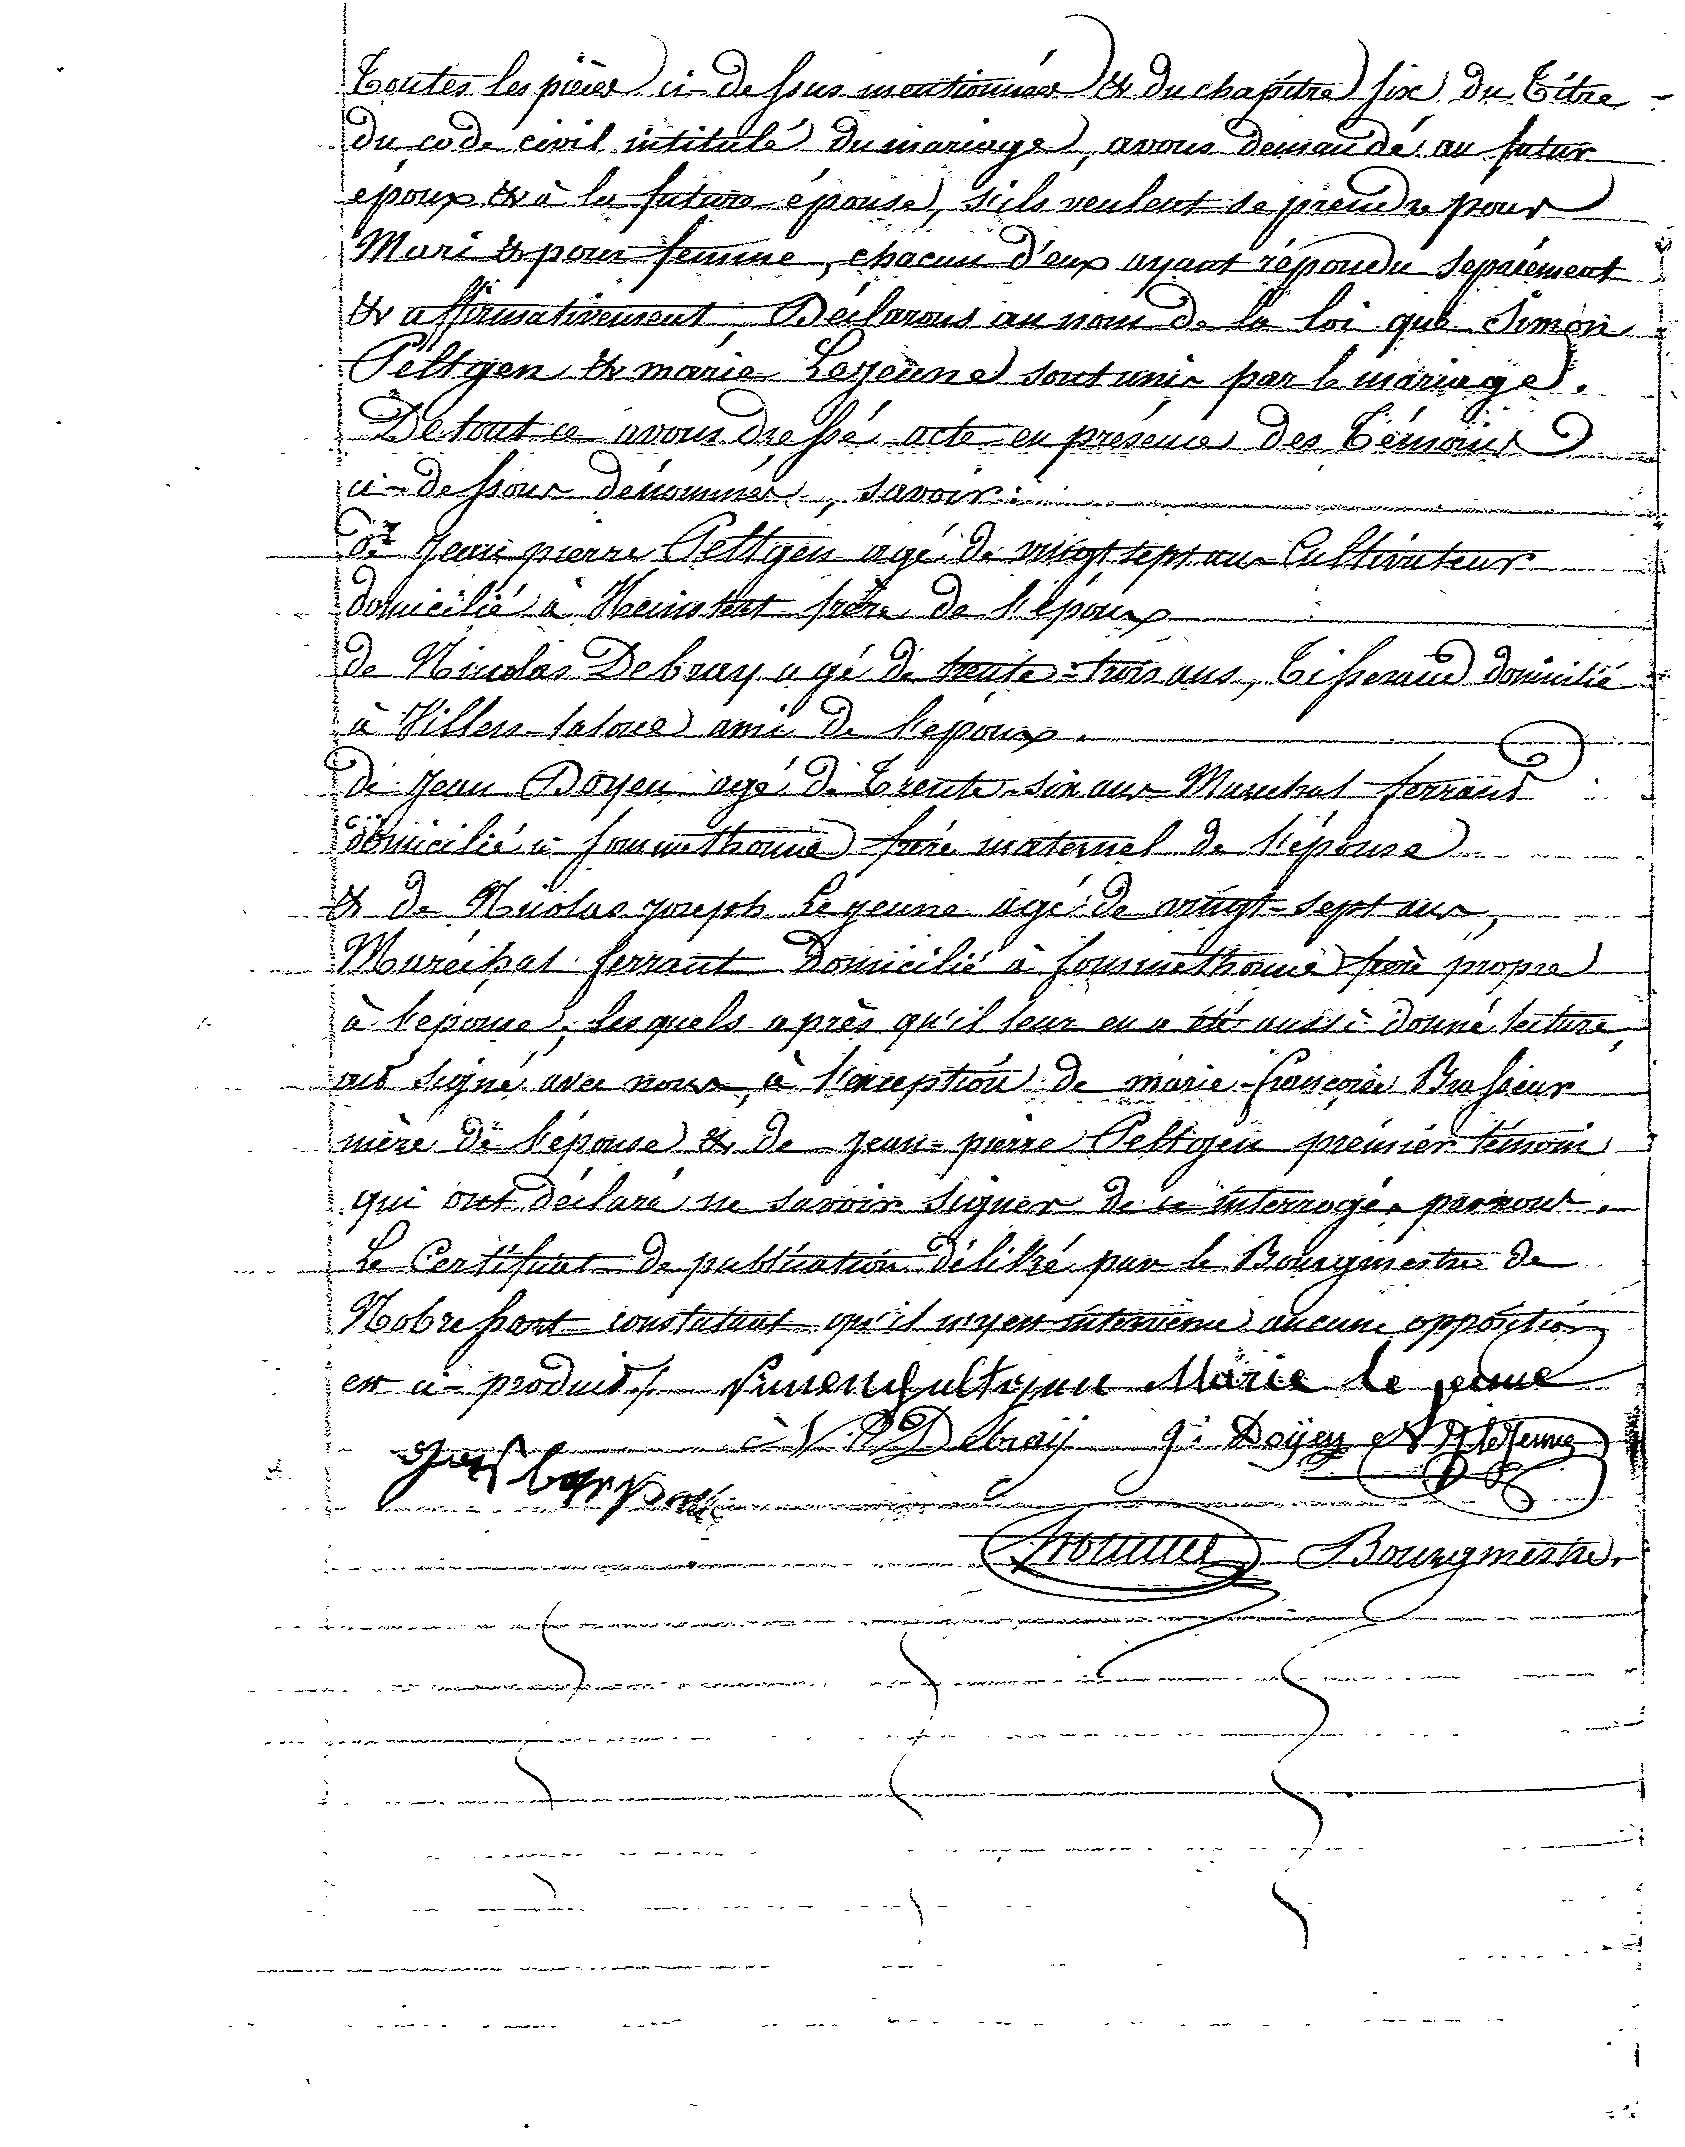 Toutes les pièces ci-dessus mentionnées & du chapitre six du Titre
du code civil intitulé du mariage, avons demandé au futur
époux & à la future épouse, s'ils veulent se prendre pour
Mari & pour femme, chacun d'eux ayant répondu séparément
& affirmativement, Déclarons au nom de la loi que Simon
Peltgen & marie Lejeune sont unis par le mariage.
De tout ce avons dressé acte en présence des Témoins
ci-dessous dénommés, savoir:
de Jean pierre Peltgen agé de vingt sept ans Cultivateur
domicilié à Heinstert frère de l'époux
de Nicolas Debray agé de trente-trois ans, Tisserand domicilié
à Villers-la loue ami de l'epoux.
de Jean Doyen agé de Trente-six ans Maréchal ferrant
domicilié à Sommethonne frère maternel de l'épouse
& de Nicolas joseph Lejeune agé de vingt-sept ans,
Maréchal ferrant Domicilié à Sommethonne frère propre
à l'epouse, lesquels après qu'il leur en a été aussi donné lecture,
ont signé avec nous, à l'exception de marie-françoise Brasseur
mère de l'épouse & de jean-pierre Peltgen prémier témoin
qui ont déclaré ne savoir signer de ce interrogés par nous.
Le Certificat de publication délivré par le Bourgmestre de
Nobressart constatant qu'il n'y en intervenu aucune opposition
est ci-produit/. Simon Marie le jeune
Debray Doyen Lejeune
Bourgmestre.